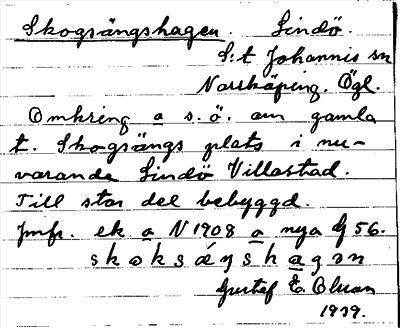 Skogsängshagen. Lindö.
S:t Johannis sn
Norrköping. Ögl.
Omkring a s.ö. om gamla
t. Skogsängs plats i nu-
varande Lindö Villastad.
Till stor del bebyggd.
Jmfr. ek a N 1908 a nya G 56.
skoksæŋshagən
Gustaf E. Olsson
1939.